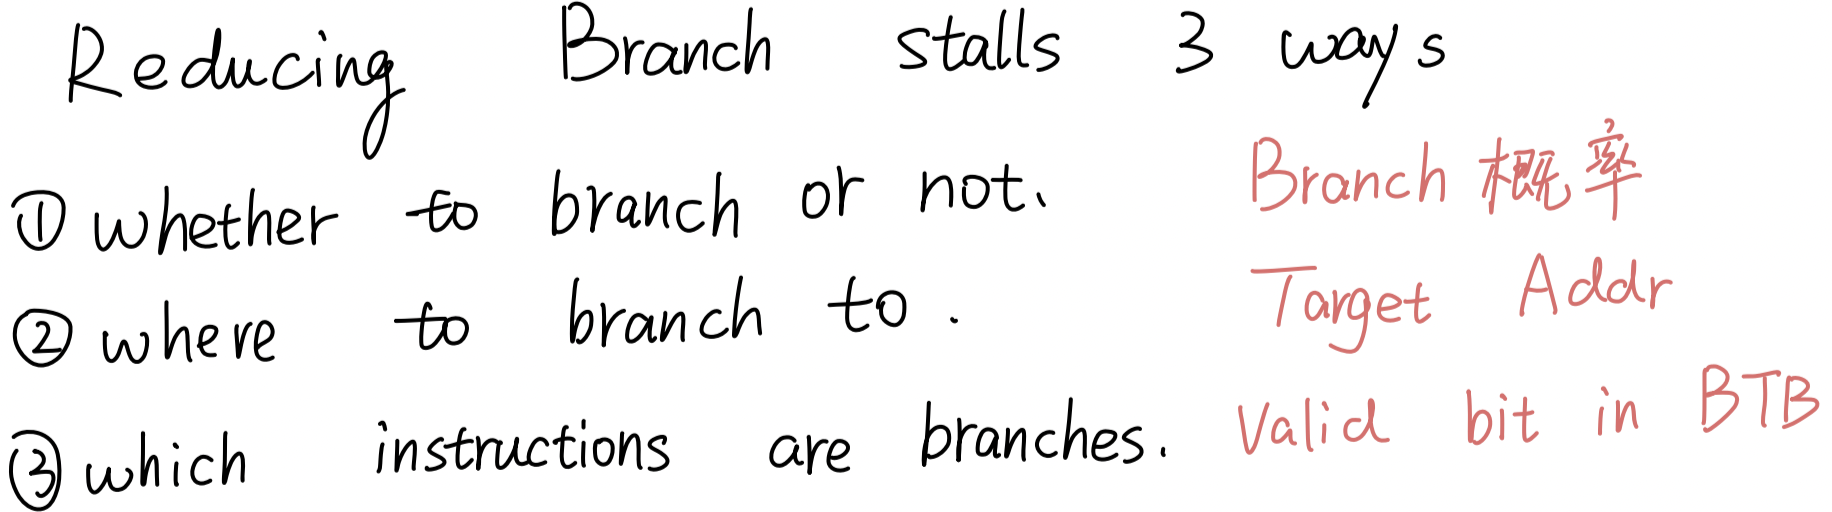 Reducing Branch stalls 3 ways
① whether to branch or not. Branch 概率
② where to branch to. Target Addr
③ which instructions are branches. Valid bit in BTB